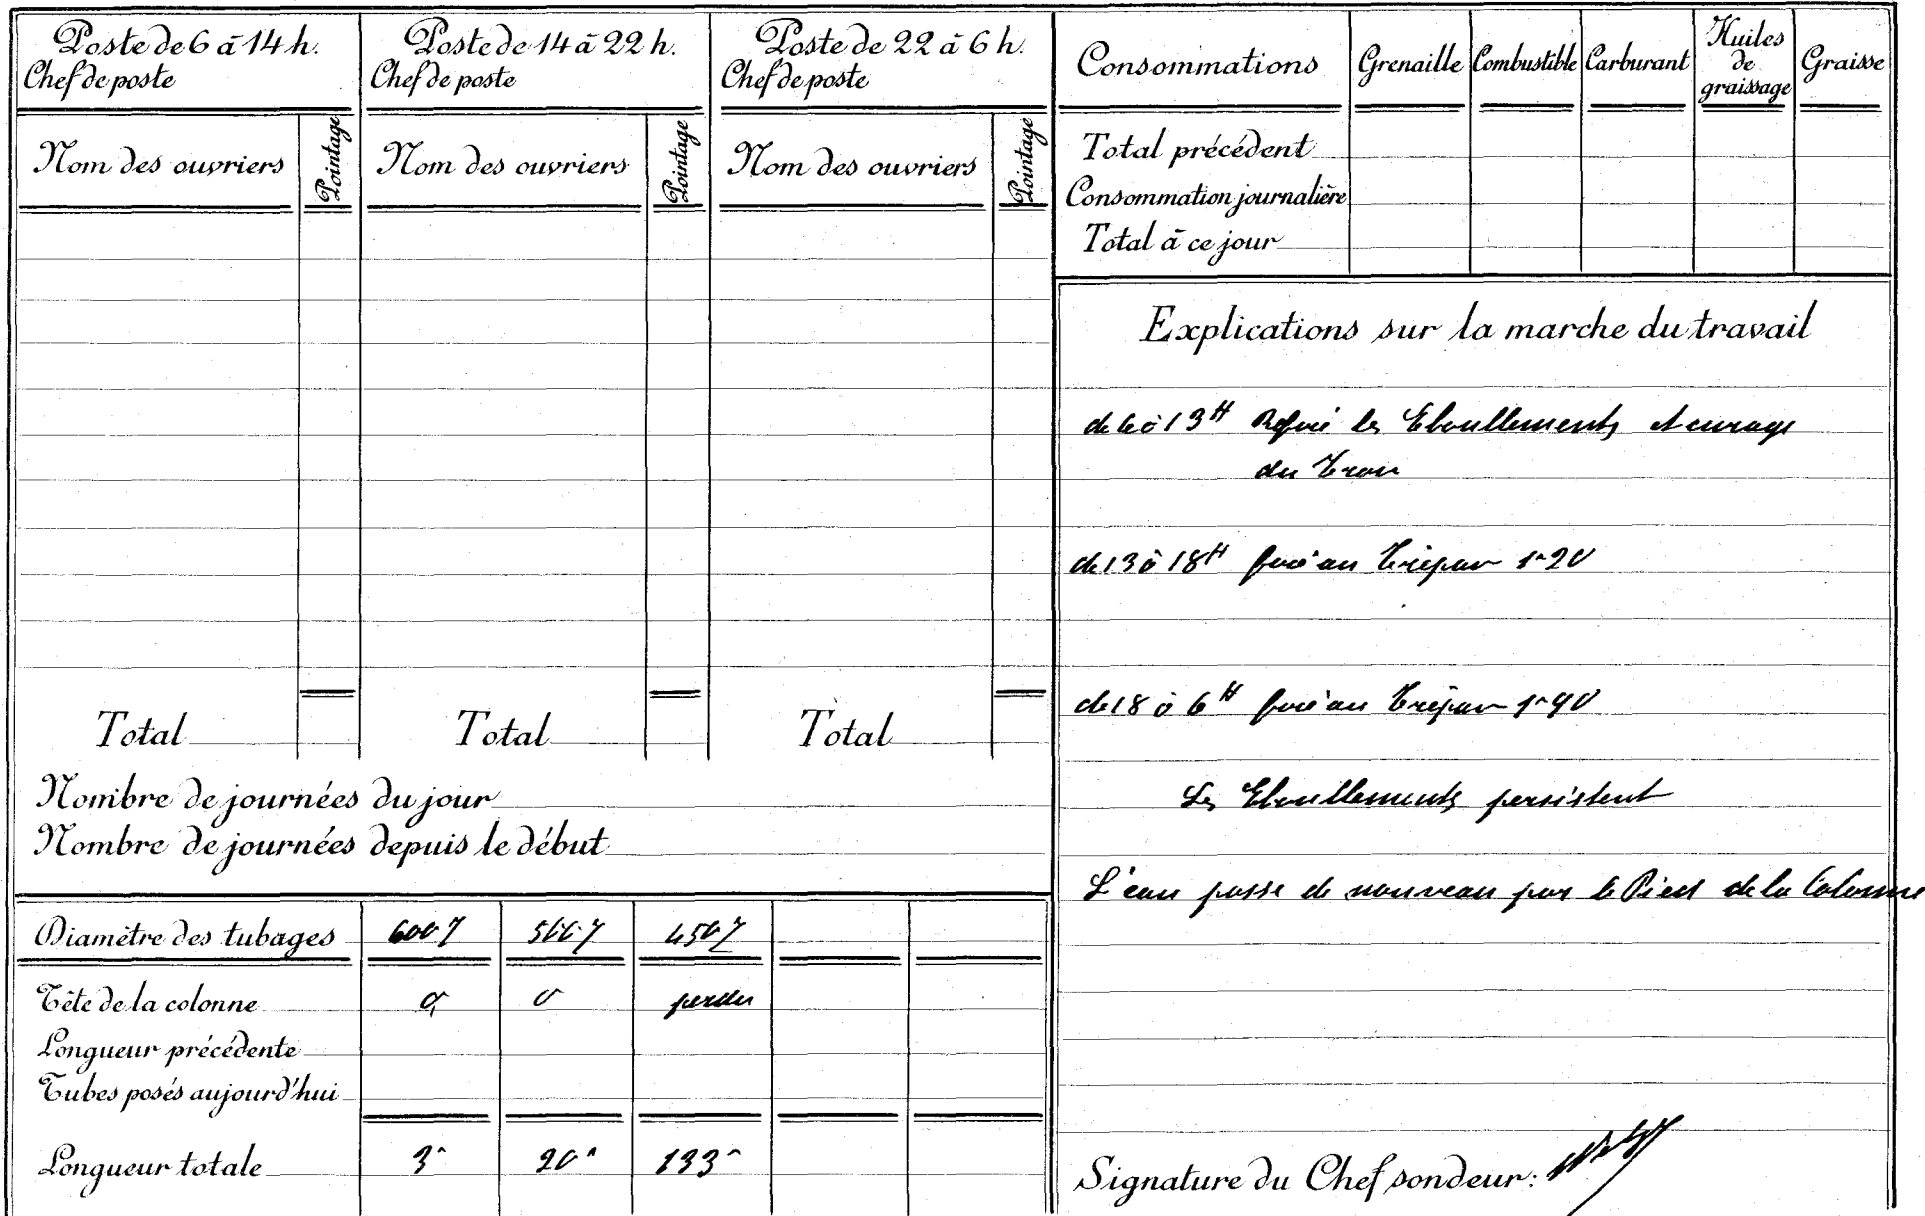 Poste de 6 à 14 h.
Chef de poste
Nom des ouvriers
Pointage
Total
Poste de 14 à 22 h.
Chef de poste
Nom des ouvriers
Pointage
Total
Poste de 22 à 6 h.
Chef de poste
Nom des ouvriers
Pointage
Total
Nombre de journées du jour
Nombre de journées depuis le début
Diamètre des tubages 600 500 450
Tête de la colonne 0 0 perdu
Longueur précédente
Tubes posés aujourd'hui
Longueur totale 3m 20m 133m
Consommations Grenaille Combustible Carburant Huiles de graissage Graisse
Total précédent
Consommation journalière
Total à ce jour
Explications sur la marche du travail
de 6 à 13H les Eboullements et curage
du Trou
de 13 à 18H foré au Trépan 1m20
de 18 à 6H foré au Trépan 1m40
Les Eboullements persistent
L'eau passe de nouveau par le Pied de la Colonne
Signature du Chef sondeur: